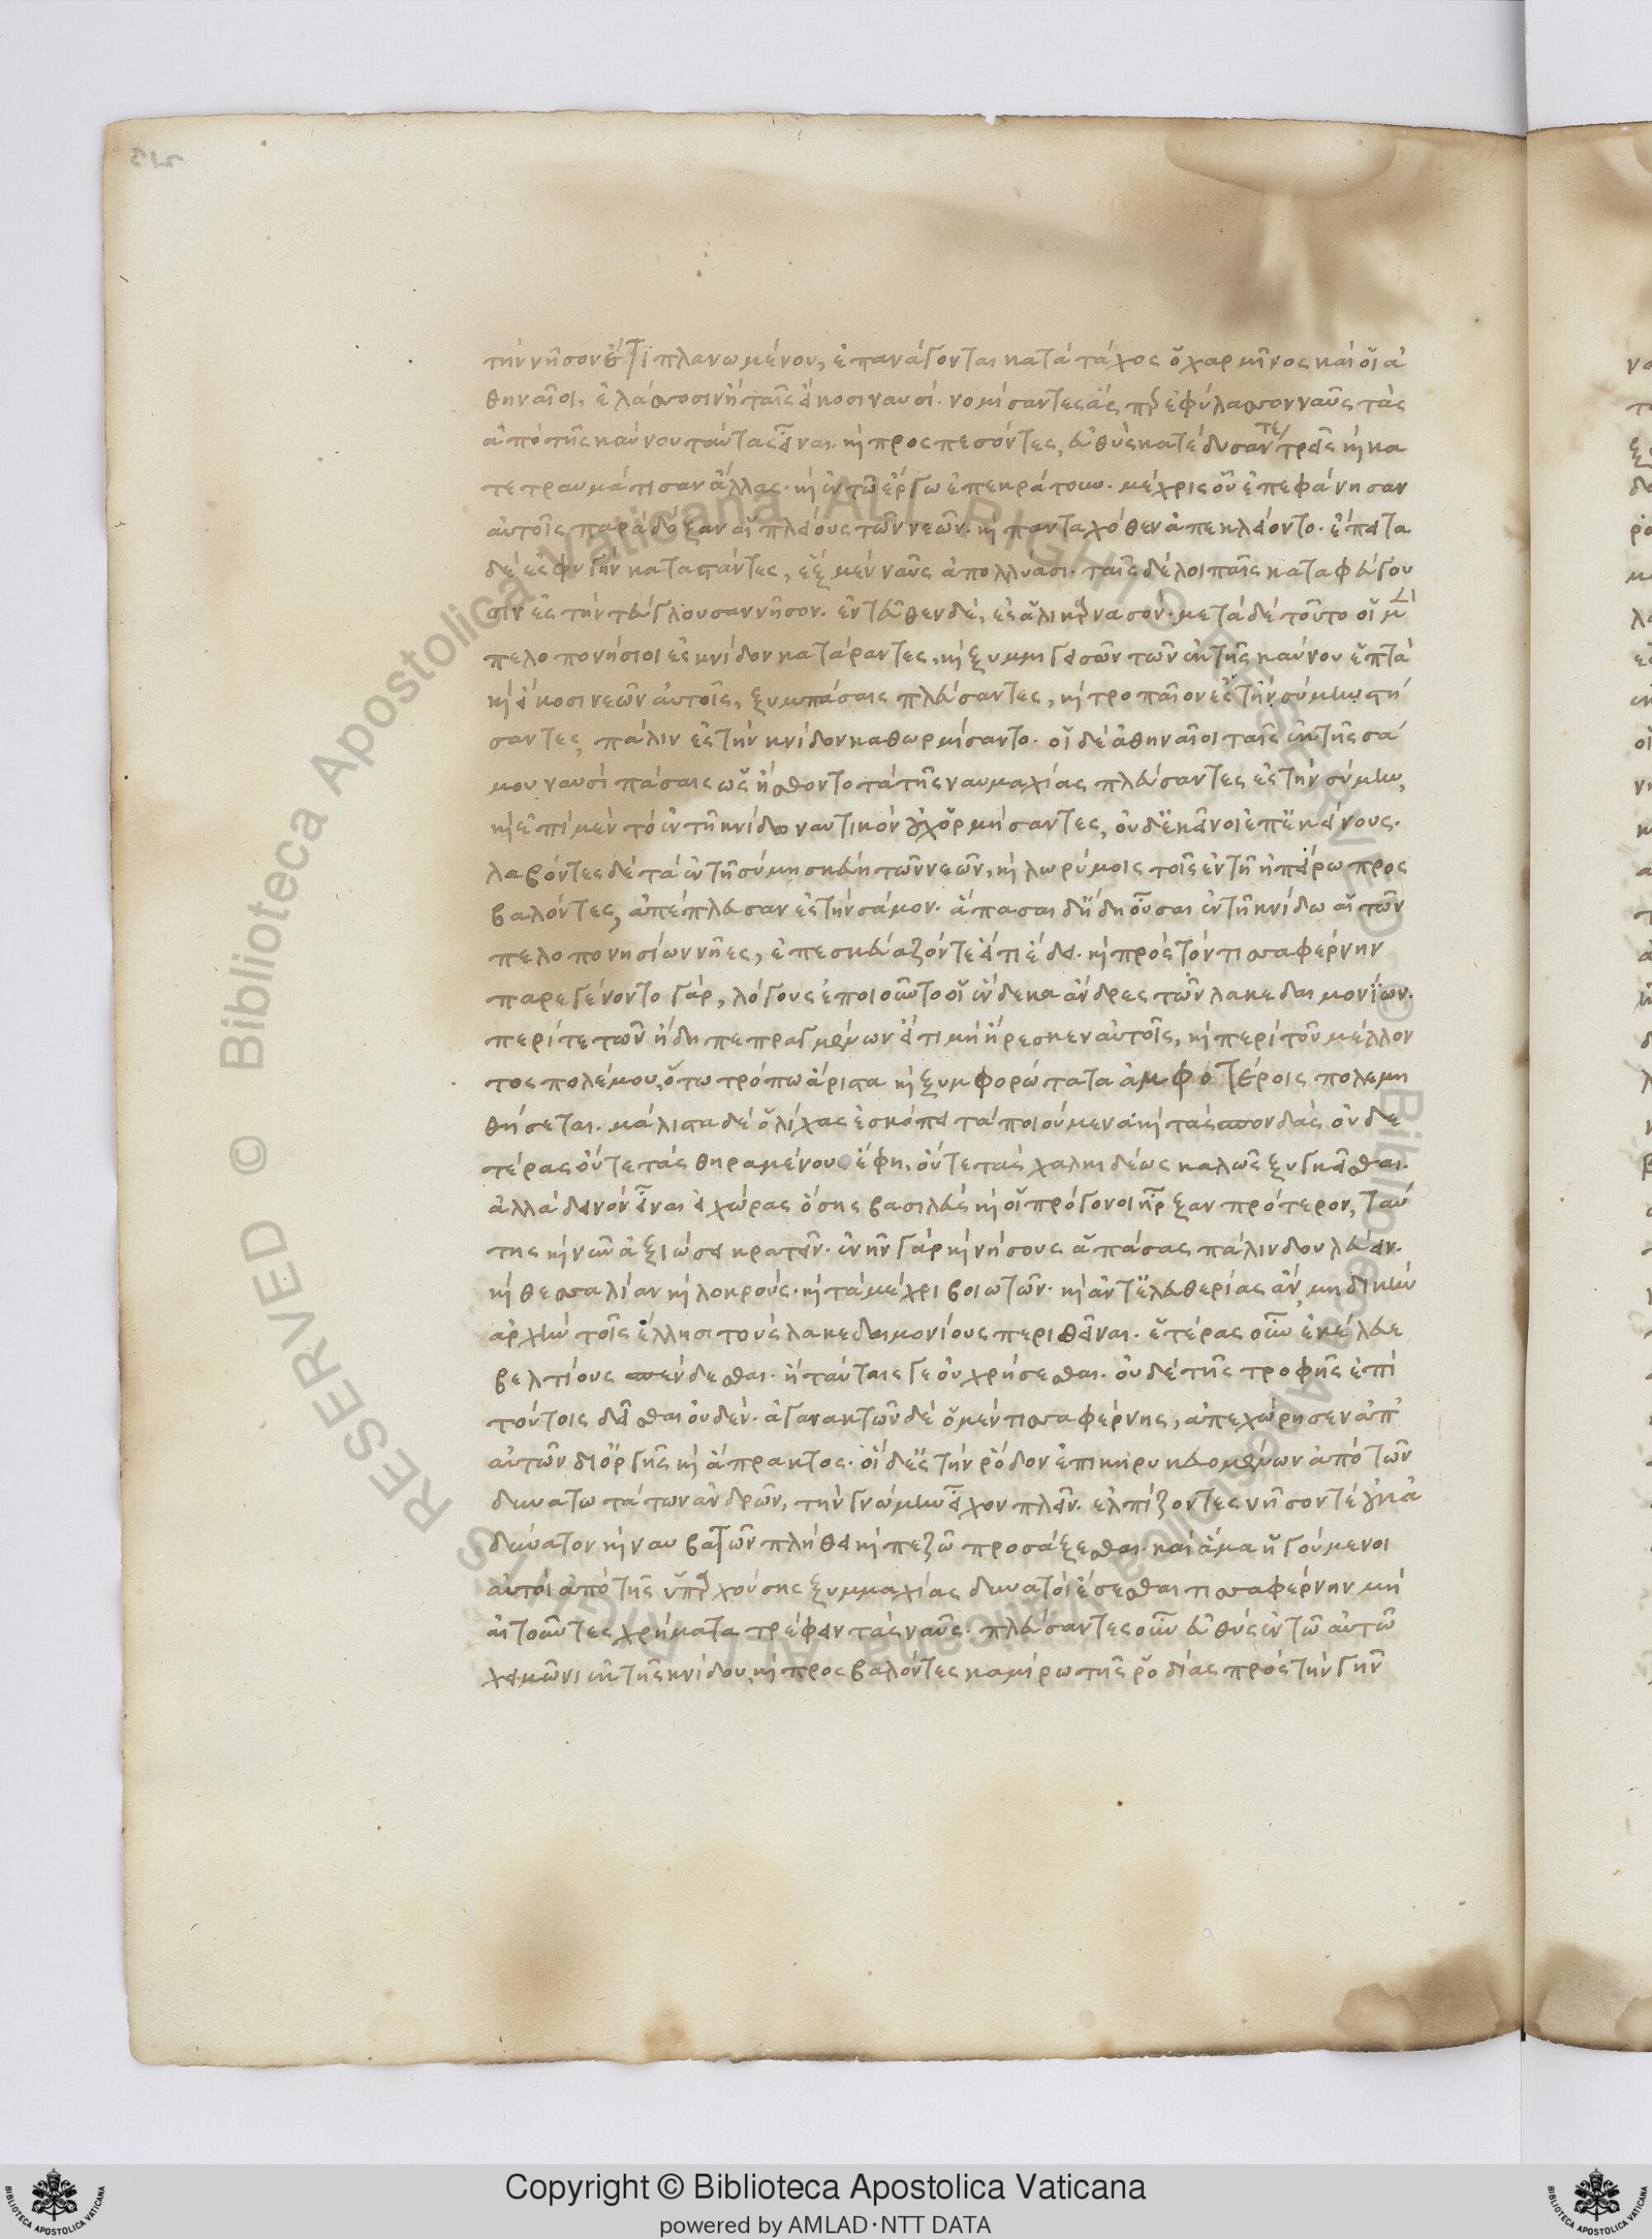 την νῆσον ἔτι πλανωμένου, ἐπανάγονται κατὰ τάχος ὁ χαρμῖνος καὶ οἱ ἀ
θηναῖοι, ἐλάσσοσιν ἢ ταῖς εἴκοσι ναυσὶ. νομίσαντες ἃς περ ἐφύλασσον ναῦς τὰς
ἀπὸ τῆς καύνου ταύτας εἶναι. καὶ προσπεσόντες, εὐθὺς κατέδυσάν τε τρεῖς καὶ κα
τετραυμάτισαν ἄλλας. καὶ ἐν τῶ ἔργω ἐπεκράτουν. μέχρις οὗ ἐπεφάνησαν
αὐτοῖς παρὰ δόξαν αἱ πλείους τῶν νεῶν. καὶ πανταχόθεν ἀπεκλείοντο. ἔπειτα
δὲ ἐς φυγὴν καταστάντες, ἓξ μὲν ναῦς ἀπολλύασι. ταῖς δὲ λοιπαῖς καταφεύγου
σιν ἐς τὴν τεύγλουσαν νῆσον. ἐντεῦθεν δὲ, ἐς ἁλικαρνασόν. μετὰ δὲ τοῦτο οἱ μὲν
πελοπονήσιοι ἐς κνίδον κατάραντες, καὶ ξυμμιγεισῶν τῶν ἐκ τῆς καύνου ἑπτὰ
καὶ εἴκοσι νεῶν αὐτοῖς, ξυμπάσαις πλεύσαντες, καὶ τροπαῖον ἐς τὴν σύμην στή
σαντες, πάλιν ἐς τὴν κνίδον καθωρμίσαντο. οἱ δὲ ἀθηναῖοι ταῖς ἐκ τῆς σά
μου ναυσὶ πάσαις ὡς ᾔσθοντο τὰ τῆς ναυμαχίας πλεύσαντες ἐς τὴν σύμην,
καὶ ἐπὶ μὲν τὸ ἐν τῆ κνίδω ναυτικὸν οὐχ ὁρμήσαντες, οὐδ' ἐκεῖνοι ἐπ' ἐκείνους.
λαβόντες δὲ τὰ ἐν τῆ σύμη σκεύη τῶν νεῶν, καὶ λωρύμοις τοῖς ἐν τῆ ἠπείρω προσ
βαλόντες, ἀπέπλευσαν ἐς τὴν σάμον. ἅπασαι δ' ἤδη οὖσαι ἐν τῆ κνίδω αἱ τῶν
πελοπονησίων νῆες, ἐπεσκευάζοντό τε εἴ τι ἔδει. καὶ πρὸς τὸν τισσαφέρνην
παρεγένοντο γὰρ, λόγους ἐποιοῦντο οἱ ἕνδεκα ἄνδρες τῶν λακεδαιμονίων.
περί τε τῶν ἤδη πεπραγμένων εἴ τι μὴ ἤρεσκεν αὐτοῖς, καὶ περὶ τοῦ μέλλον
τος πολέμου, ὅτω τρόπω ἄριστα καὶ ξυμφορώτατα ἀμφοτέροις πολεμη
θήσεται. μάλιστα δὲ ὁ λίχας ἐσκόπει τὰ ποιούμενα καὶ τὰς σπονδὰς οὐδε
τέρας οὔτε τὰς θηραμένους ἔφη, οὔτε τὰς χαλκιδέως καλῶς ξυγκεῖσθαι.
ἀλλὰ δεινὸν εἶναι εἰ χώρας ὅσης βασιλεὺς καὶ οἱ πρόγονοι ἦρξαν πρότερον, ταύ
της καὶ νῦν ἀξιώσει κρατεῖν. ἐνῆν γὰρ καὶ νήσους ἁπάσας πάλιν δουλεύειν.
καὶ θεσσαλίαν καὶ λοκρούς. καὶ τὰ μέχρι βοιωτῶν. καὶ ἀντ' ἐλευθερίας ἂν, μηδικὴν
ἀρχὴν τοῖς ἕλλησι τοὺς λακεδαιμονίους περιθεῖναι. ἑτέρας οὖν ἐκέλευε
βελτίους σπένδεσθαι. ἢ ταύταις γε οὐ χρήσεσθαι. οὐδὲ τῆς τροφῆς ἐπὶ
τούτοις δεῖσθαι οὐδέν. ἀγανακτῶν δὲ ὁ μὲν τισσαφέρνης, ἀπεχώρησεν ἀπ'
αὐτῶν δι' ὀργῆς καὶ ἄπρακτος. οἱ δ' ἐς τὴν ῥόδον ἐπικηρυκευομένων ἀπὸ τῶν
δυνατωτάτων ἀνδρῶν, τὴν γνώμην εἶχον πλεῖν. ἐλπίζοντες νῆσόν τε οὐκ ἀ
δύνατον καὶ ναυβατῶν πλήθει καὶ πεζῶ προσάξεσθαι. καὶ ἅμα ἡγούμενοι
αὐτοὶ ἀπὸ τῆς ὑπαρχούσης ξυμμαχίας δυνατοὶ ἔσεσθαι τισσαφέρνην μὴ
αἰτοῦντες χρήματα τρέφειν τὰς ναῦς. πλεύσαντες οὖν εὐθὺς ἐν τῶ αὐτῶ
χειμῶνι ἐκ τῆς κνίδου, καὶ προσβαλόντες καμίρω τῆς ῥοδίας πρὸς τὴν γῆν
Copyright © Biblioteca Apostolica Vaticana
powered by AMLAD·NTT DATA